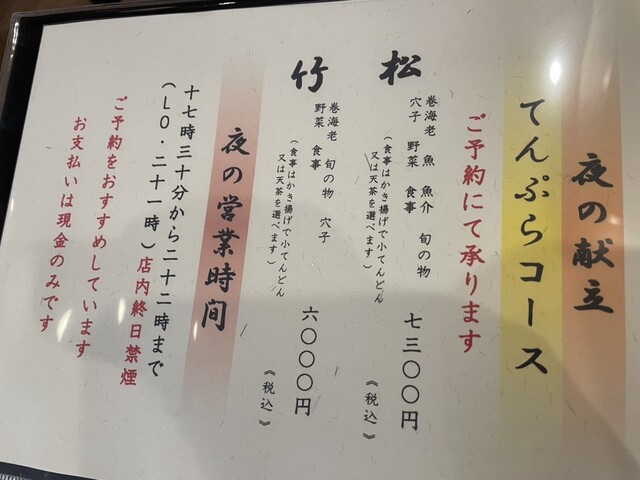 夜の献立
てんぷらコース
ご予約にて承ります
松
巻海老 魚 魚介 旬の物
穴子 野菜 食事
(食事はかき揚げで小てんどん
又は天茶を選べます)
七三〇〇円
《税込》
竹
巻海老 旬の物 穴子
野菜 食事
(食事はかき揚げで小てんどん
又は天茶を選べます)
六〇〇〇円
《税込》
夜の営業時間
十七時三十分から二十二時まで
(LO・二十一時)店内終日禁煙
ご予約をおすすめしています
お支払いは現金のみです